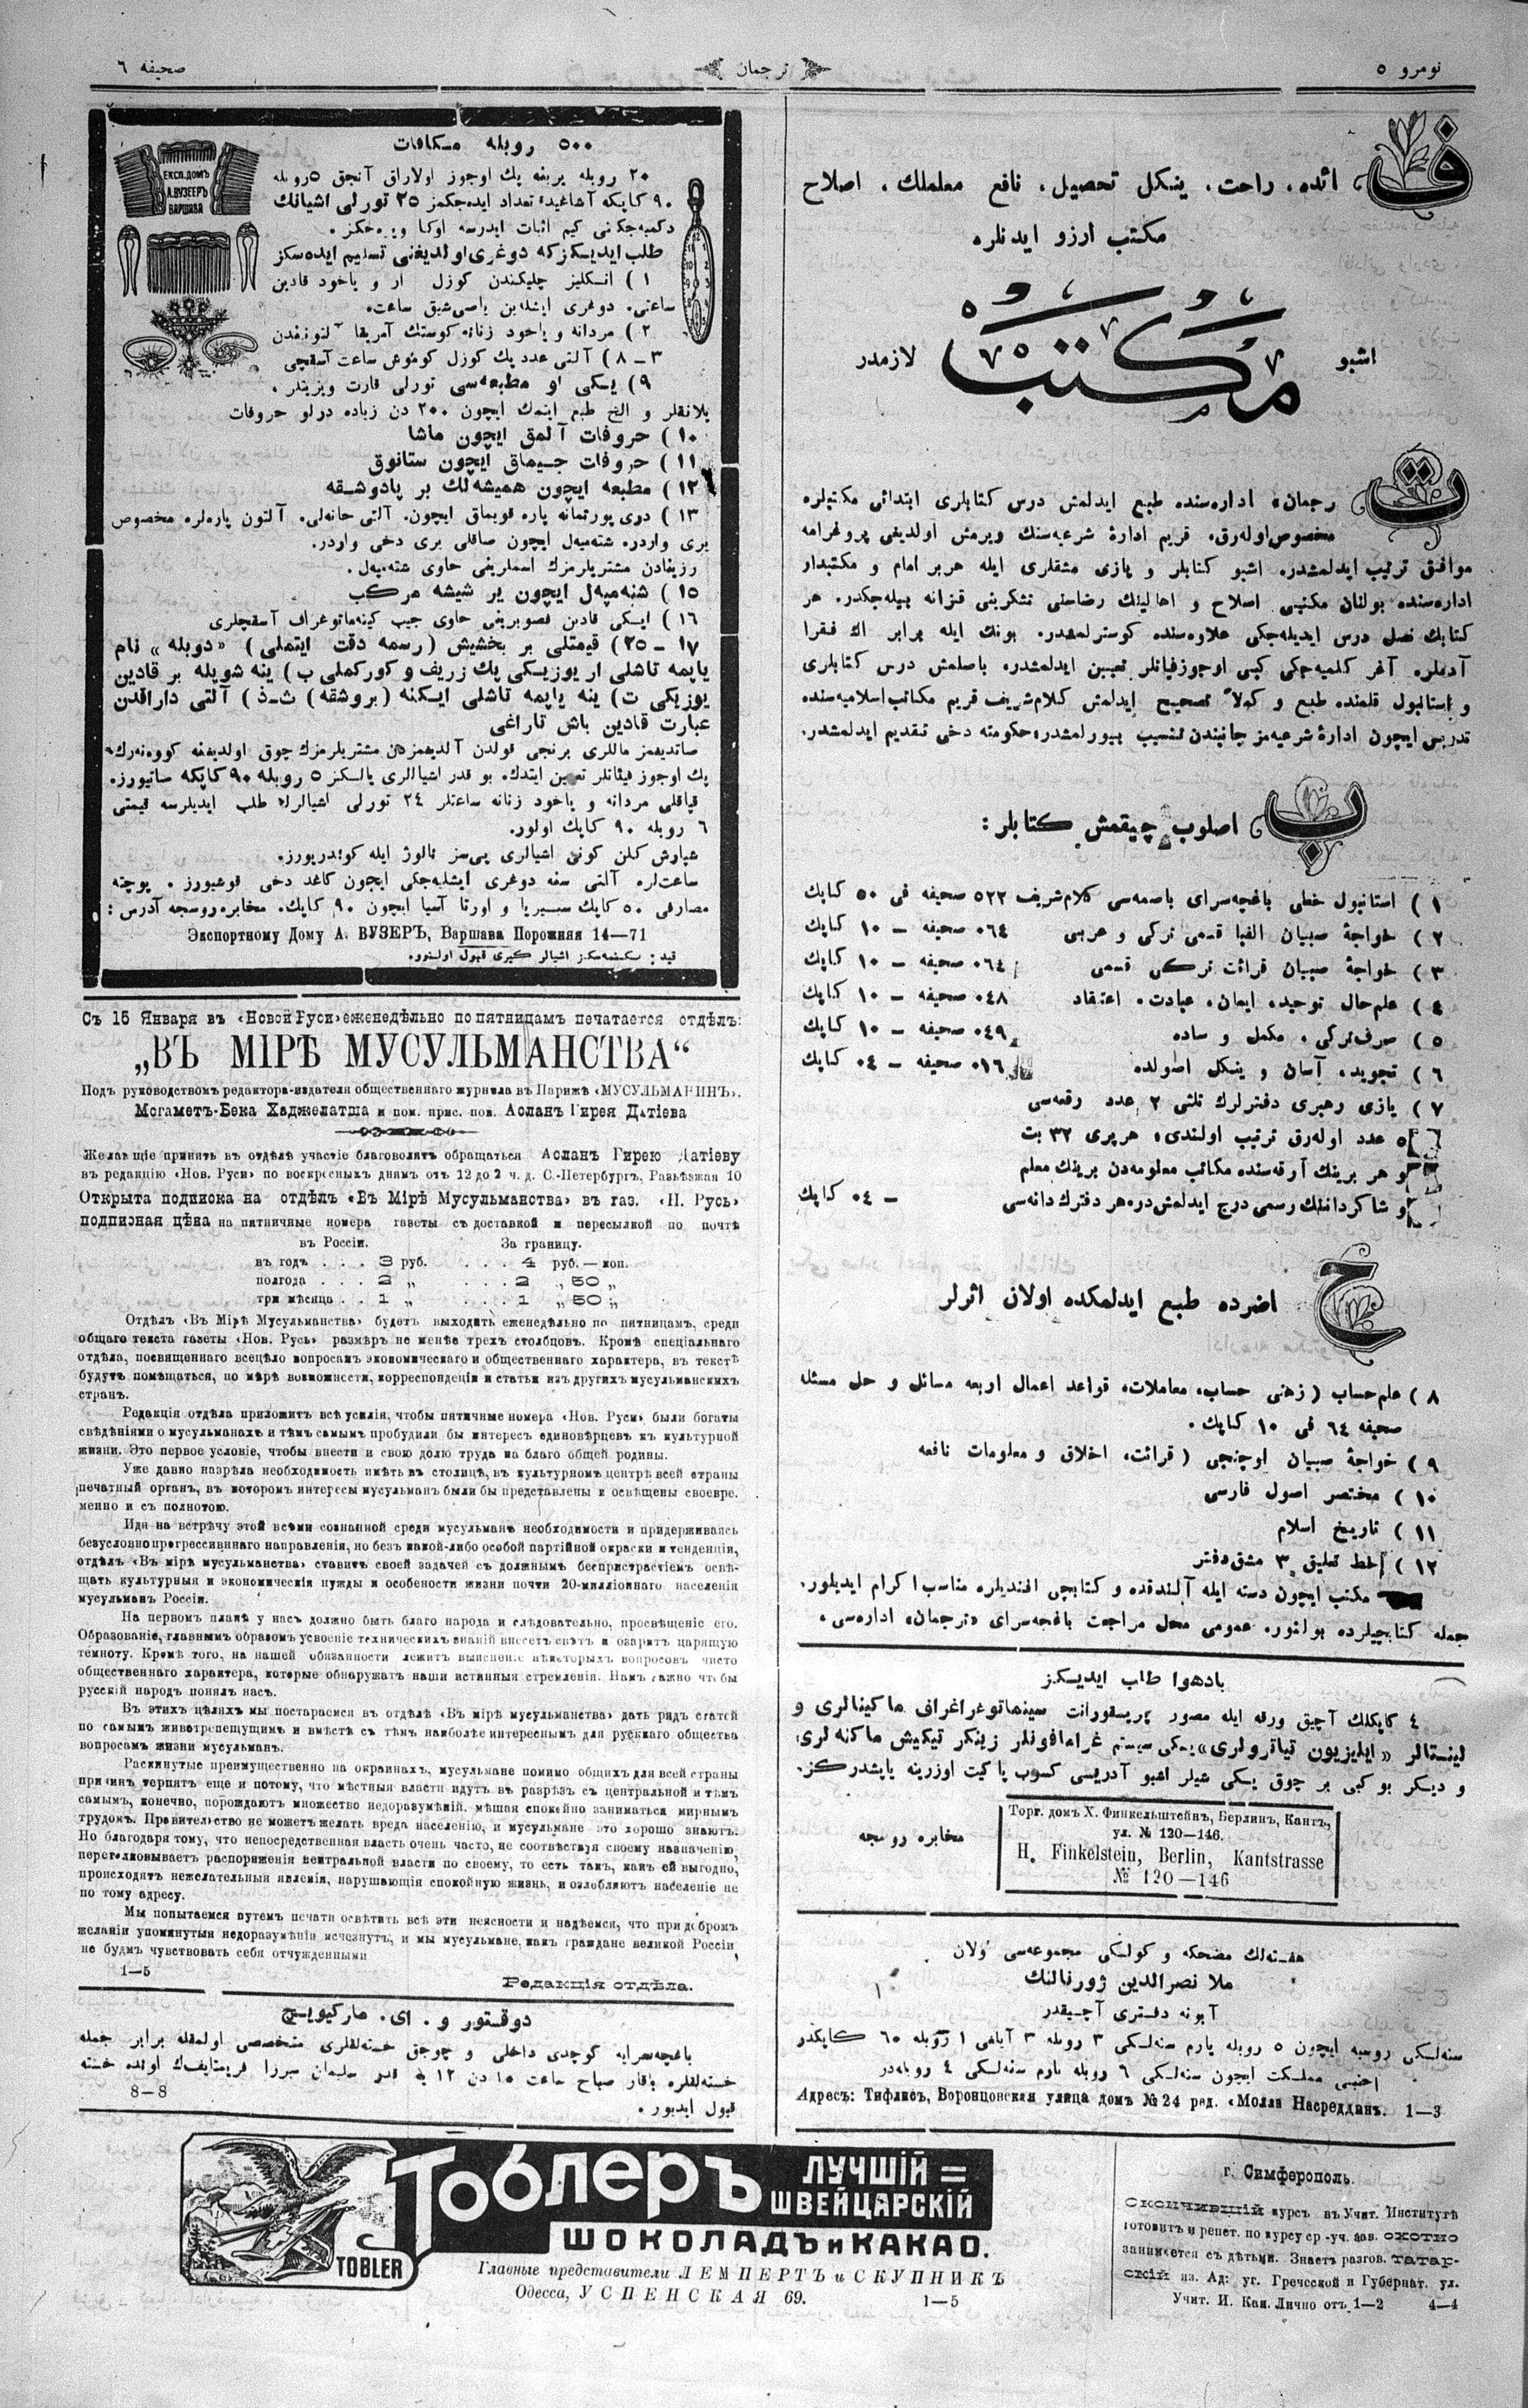 نومرو ٥
ترجمان
صحیفه ٦
فائده، راحت، ینكل تحصیل، نافع معلملك، اصلاح
مكتب ارزو ایدنلره
اشبو
مكتب
لازمدر
ترجمان، اداره‌سنده طبع ایدلمش درس كتابلری ابتدائی مكتبلره
مخصوص اوله‌رق، قریم ادارهٔ شرعیه‌سنك ویرمش اولدیغی پروغرامه
موافق ترتیب ایدلمشدر. اشبو كتابلر و یازی مشقلری ایله هربر امام و مكتبدار
اداره‌سنده بولنان مكتبی اصلاح و اهالینك رضاسنی تشكرینی قزانه بیله‌جكدر. هر
كتابك نصل درس ایدیله‌جكی علاوه‌سنده كوسترلمشدر. بونك ایله برابر اك فقرا
آدملره آغر كلمیه‌جكی كبی اوجوز فیأتلر تعیین ایدلمشدر. باصلمش درس كتابلری
و استانبول قلمنده طبع و كولاً تصحیح ایدلمش كلام‌شریف قریم مكاتب اسلامیه‌سنده
تدریس ایچون ادارهٔ شرعیه‌مز جانبندن تنسیب بیورلمشدر، حكومته دخی تقدیم ایدلمشدر.
باصلوب چیقمش كتابلر:
١ ) استانبول خطی باغچه‌سرای باصمه‌سی كلام‌شریف ٥٢٢ صحیفه فی ٥٠ كاپك
٢ ) خواجهٔ صبیان الفبا قسمی تركی و عربی ٠٦٤ صحیفه – ١٠ كاپك
٣ ) خواجهٔ صبیان قرائت تركی قسمی ٠٦٤ صحیفه – ١٠ كاپك
٤ ) علم‌حال توحید، ایمان، عبادت، اعتقاد ٠٤٨ صحیفه – ١٠ كاپك
٥ ) صرف‌تركی، مكمل و ساده ٠٤٩ صحیفه – ١٠ كاپك
٦ ) تجوید، آسان و ینكل اصولده ٠١٦ صحیفه – ٠٤ كاپك
٧ ) یازی رهبری دفترلرك ثلثی ٢ عدد رقعه‌سی
٥ عدد اوله‌رق ترتیب اولندی، هربری ٣٢ بت
و هر برینك آرقه‌سنده مكاتب معلومه‌دن برینك معلم
و شاكرداننك رسمی درج ایدلمش‌در، هر دفترك دانه‌سی – ٠٤ كاپك
حاضرده طبع ایدلمكده اولان اثرلر
٨ ) علم‌حساب (زهنی حساب، معاملات، قواعد اعمال اربعه مسائل و حل مسئله
صحیفه ٦٤ فی ١٠ كاپك.
٩ ) خواجهٔ صبیان اوچنجی (قرائت، اخلاق و معلومات نافعه
١٠ ) مختصر اصول فارسی
١١ ) تاریخ اسلام
١٢ ) خط تعلیق ٣ مشق دفتر
مكتب ایچون دسته ایله آلندقده و كتابچی افندیلره مناسب اكرام ایدیلور.
جمله كتابچیلرده بولنور. عمومی محل مراجعت باغچه‌سرای «ترجمان» اداره‌سی.
بادهوا طلب ایدیكز
٤ كاپكلك آچیق ورقه ایله مصور پریسقورانت سینماتوغراغرافی ماكینالری و
لینتالر «ایلیزیون تیاترولری» یكی سیستم غراماфونلر زینكر تیكیش ماكنه‌لری
و دیكر بو كبی بر چوق یكی شیلر اشبو آدریسی كسوب پاكیت اوزرینه یاپشدركز.
مخابره روسجه
Торг. домъ Х. Финкельштейнъ, Берлинъ, Кантъ,
ул. № 120—146.
H. Finkelstein, Berlin, Kantstrasse
№ 120—146
هفته‌لك مضحكه و كولكی مجموعه‌سی اولان
ملا نصرالدین ژورنالنك
آبونه دفتری آچیقدر
سنه‌لیكی روسیه ایچون ٥ روبله یارم سنه‌لیكی ٣ روبله ٣ آیلغی ١ روبله ٦٠ كاپكدر
اجنبی مملكت ایچون سنه‌لیكی ٦ روبله یارم سنه‌لیكی ٤ روبله‌در
Адресъ: Тифлисъ, Воронцовская улица домъ № 24 ред. «Молла Насреддинъ. 1—3
٥٠٠ روبله مكافات
٢٠ روبله یرینه پك اوجوز اولاراق آنجق ٥ روبله
٩٠ كاپكه آشاغیده تعداد ایده‌جكمز ٢٥ تورلی اشیانك
دكمیه‌جكنی كیم اثبات ایدرسه اوكا ویره‌جكز.
طلب ایدیكزكه دوغری اولدیغنی تسلیم ایده‌سكز
ЕКСП.ДОМЪ
А.ВУЗЕЕРЪ
ВАРШАВА
١ ) انكلیز چلیكندن كوزل ار و یاخود قادین
ساعتی. دوغری ایشله‌ین یاسی شیق ساعت.
٢ ) مردانه و یاخود زنانه كوستك آمریقا آلتونندن
٣ – ٨ ) آلتی عدد پك كوزل كوموش ساعت آسقیچی
٩ ) یكی او مطبعه‌سی تورلی قارت ویزیتلر،
بلانقلر و الخ طبع ایتمك ایچون ٢٠٠ دن زیاده درلو حروفات
١٠ ) حروفات آلمق ایچون ماشا
١١ ) حروفات جیماق ایچون ستانوق
١٢ ) مطبعه ایچون همیشه‌لك بر پادوشقه
١٣ ) دری پورتمانه پاره قویماق ایچون. آلتی خانه‌لی. آلتون پاره‌لره مخصوص
یری واردر. شته‌مپل ایچون صاقلی یری دخی واردر.
رزیفادن مشتریلرمزك اسملرینی حاوی شته‌مپل.
١٥ ) شته‌مپه‌ل ایچون بر شیشه مركب
١٦ ) ایكی قادین قصویرینی حاوی جیب كینه‌ماتوغراف آسقچلری
١٧ – ٢٥) قیمتلی بر بخشیش (رسمه دقت ایتملی) «دوبله» نام
یاپمه تاشلی ار یوزیكی پك زریف و كوركملی ب) ینه شویله بر قادین
یوزیكی ت) ینه یاپمه تاشلی ایكنه (بروشقه) ث–ذ) آلتی داراقدن
عبارت قادین باش تاراغی
صاتدیغمز ماللری برنجی قولدن آلدیغمزدن مشتریلرمزك چوق اولدیغنه كووه‌نه‌رك
پك اوجوز فیئاتلر تعیین ایتدك. بو قدر اشیالری یالكز ٥ روبله ٩٠ كاپكه ساتیورز.
قپاقلی مردانه و یاخود زنانه ساعتلر ٢٤ تورلی اشیالرله طلب ایدیلرسه قیمتی
٦ روبله ٩٠ كاپك اولور.
سپارش كلن كونی اشیالری پی‌سز نالوژ ایله كوندریورز.
ساعتلره آلتی سنه دوغری ایشلیه‌جكی ایچون كاغد دخی قوعیورز. پوچته
مصارفی ٥٠ كاپك سبیریا و اورتا آسیا ایچون ٩٠ كاپك. مخابره روسجه آدرس:
Экспортному Дому А. ВУЗЕРЪ, Варшава Порожняя 14—71
قید: بكنمه‌سكز اشیالر كیری قبول اولنور.
Съ 15 Января въ «Новой Руси» еженедѣльно по пятницамъ печатается отдѣлъ:
„ВЪ МІРѢ МУСУЛЬМАНСТВА“
Подъ руководствомъ редактора-издателя общественнаго журнала въ Парижѣ «МУСУЛЬМАНИНЪ».
Могаметъ-Бека Хаджелатша и пом. прис. пов. Асланъ Гирея Датіева
Желающіе принять въ отдѣлѣ участіе благоволятъ обращаться Асланъ Гирею Датіеву
въ редакцію «Нов. Руси» по воскреснымъ днямъ отъ 12 до 2 ч. д. С.-Петербургъ, Разъѣзжая 10
Открыта подписка на отдѣлъ «Въ Мірѣ Мусульманства» въ газ. «Н. Русь»
подписная цѣна на пятничные номера газеты съ доставкой и пересылкой по почтѣ
въ Россіи. За границу.
въ годъ . . . 3 руб. . . . 4 руб. — коп.
полгода . . . 2 „ . . . 2 „ 50 „
три мѣсяца . . 1 „ . . . 1 „ 50 „
Отдѣлъ «Въ Мірѣ Мусульманства» будетъ выходить еженедѣльно по пятницамъ, среди
общаго текста газеты «Нов. Русь» размѣръ не менѣе трехъ столбцовъ. Кромѣ спеціальнаго
отдѣла, посвященнаго всецѣло вопросамъ экономическаго и общественнаго характера, въ текстѣ
будутъ помѣщаться, по мѣрѣ возможности, корреспонденціи и статьи изъ другихъ мусульманскихъ
странъ.
Редакція отдѣла приложитъ всѣ усилія, чтобы пятничные номера «Нов. Руси» были богаты
свѣдѣніями о мусульманахъ и тѣмъ самымъ пробудили бы интересъ единовѣрцевъ къ культурной
жизни. Это первое условіе, чтобы внести и свою долю труда на благо общей родины.
Уже давно назрѣла необходимость имѣть въ столицѣ, въ культурномъ центрѣ всей страны
печатный органъ, въ которомъ интересы мусульманъ были бы представлены и освѣщены своевре.
менно и съ полнотою.
Идя на встрѣчу этой всѣми сознанной среди мусульманъ необходимости и придерживаясь
безусловно прогрессивнаго направленія, но безъ какой-либо особой партійной окраски и тенденціи,
отдѣлъ «Въ мірѣ мусульманства» ставитъ своей задачей съ должнымъ безпристрастіемъ освѣ-
щать культурныя и экономическія нужды и особености жизни почти 20-милліоннаго населенія
мусульманъ Россіи.
На первомъ планѣ у насъ должно быть благо народа и слѣдовательно, просвѣщеніе его.
Образованіе, главнымъ образомъ усвоеніе техническихъ знаній внесетъ свѣтъ и озаритъ царящую
темноту. Кромѣ того, на нашей обязанности лежитъ выясненіе нѣкоторыхъ вопросовъ чисто
общественнаго характера, которые обнаружатъ наши истинныя стремленія. Намъ важно чтобы
русскій народъ понялъ насъ.
Въ этихъ цѣляхъ мы постараемся въ отдѣлѣ «Въ мірѣ мусульманства» дать рядъ статей
по самымъ животрепещущимъ и вмѣстѣ съ тѣмъ наиболѣе интереснымъ для рускаго общества
вопросамъ жизни мусульманъ.
Раскинутые преимущественно на окраинахъ, мусульмане помимо общихъ для всей страны
причинъ терпятъ еще и потому, что мѣстныя власти идутъ въ разрѣзъ съ центральной и тѣмъ
самымъ, конечно, порождаютъ множество недоразумѣній, мѣшая спокойно заниматься мирнымъ
трудомъ. Правительство не можетъ желать вреда населенію, и мусульмане это хорошо знаютъ.
Но благодаря тому, что непосредственная власть очень часто, не соотвѣтствуя своему назначенію,
перетолковываетъ распоряженія центральной власти по своему, то есть такъ, какъ ей выгодно,
происходятъ нежелательныя явленія, нарушающія спокойную жизнь, и озлобляютъ населеніе не
по тому адресу.
Мы попытаемся путемъ печати освѣтить всѣ эти неясности и надѣемся, что при добромъ
желаніи упомянутыя недоразумѣнія исчезнутъ, и мы мусульмане, какъ граждане великой Россіи
не будмъ чувствовать себя отчужденными
1—5
Редакція отдѣла.
دوقتور و. ای. ماركیویچ
باغچه‌سرایه كوچدی داخلی و چوجق خسته‌لقلری متخصصی اولمقله برابر جمله
خسته‌لقلره باقار صباح ساعت ١٠ دن ١٢ یه قدر سلیمان میرزا قریمتایف‌ك اونده خسته
قبول ایدیور.
8—8
Тоблеръ
ЛУЧШІЙ
ШВЕЙЦАРСКІЙ
ШОКОЛАДЪ и КАКАО.
TOBLER
Главные представители ЛЕМПЕРТЪ и СКУПНИКЪ
Одесса, УСПЕНСКАЯ 69. 1—5
г. Симферополь.
Окончившій курсъ въ Учит. Институтѣ
готовитъ и репет. по курсу ср.-уч. зав. охотно
занимается съ дѣтьми. Знаетъ разгов. татар-
скій яз. Ад: уг. Греческой и Губернат. ул.
Учит. И. Кая. Лично отъ 1—2 4—4